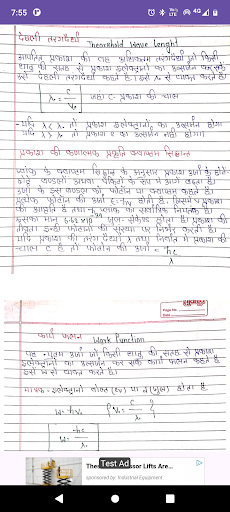 7:55
4G
देहली तरंगदैर्ध्य Theorehold Wave Lenght
आपतित प्रकाश की वह अधिकतम तरंगदैर्ध्य जो किसी
धातु की सतह से प्रकाश इलेक्ट्रॉनों का उत्सर्जन कर सके
उसे देहली तरंगदैर्ध्य कहते हैं इसे λ₀ से व्यक्त करते हैं
λ₀ = C/ν₀ जहां C- प्रकाश की चाल
- यदि λ < λ₀ तो प्रकाश इलेक्ट्रॉनों का उत्सर्जन होगा
- यदि λ > λ₀ तो प्रकाश e का उत्सर्जन नहीं होगा।
प्रकाश की कणात्मक प्रकृति क्वाण्टम सिद्धान्त
प्लांक के क्वाण्टम सिद्धान्त के अनुसार प्रकाश ऊर्जा के छोटे
छोटे बण्डलों अथवा पैकेटों के रूप में आगे बढ़ता है।
ऊर्जा के इस बण्डल को फोटॉन या क्वाण्टम कहते हैं
प्रत्येक फोटॉन की ऊर्जा E = hν होती है जिसमें ν प्रकाश
की आवृत्ति है तथा h प्लांक का सार्वत्रिक नियतांक है।
इसका मान जूल-सेकण्ड होता है। प्रकाश की
तीव्रता इन्हीं फोटॉनों की संख्या पर निर्भर करती है।
यदि प्रकाश की तरंगदैर्ध्य λ तथा निर्वात में प्रकाश की
चाल C है तो फोटॉन की ऊर्जा = hc/λ
Page No.
Date
कार्य फलन Work function
वह न्यूनतम ऊर्जा जो किसी धातु की सतह से प्रकाश
इलेक्ट्रॉनों का उत्सर्जन कर सके कार्य फलन कहते हैं
इसे W से व्यक्त करते हैं।
मात्रक- इलेक्ट्रॉनों वोल्ट (ev) या J (जूल) होता है
W = hν₀ { ν₀ = C/λ₀ }
W = hc/λ₀
Test Ad
Sponsored by: Industrial Equipment